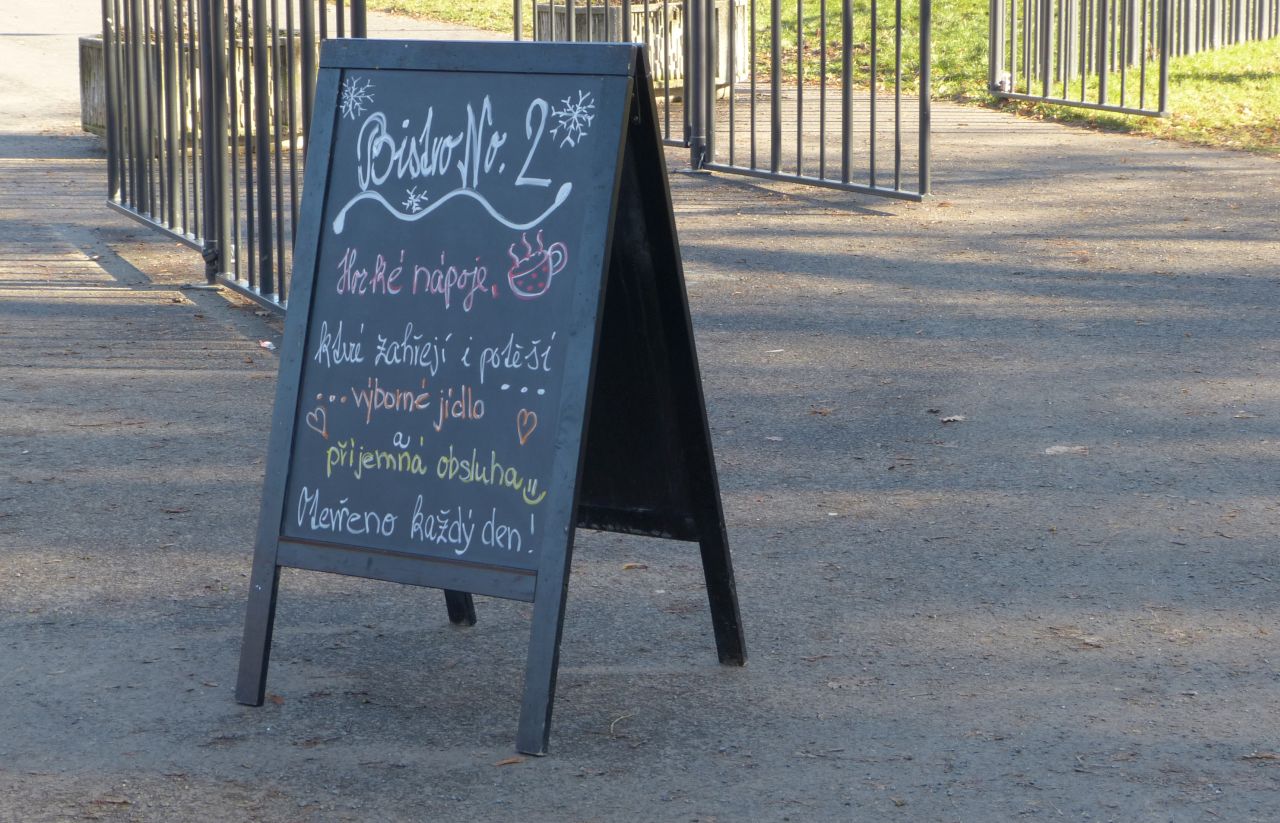 Bistro No. 2
Horké nápoje,
které zahřejí i potěší
...
... výborné jídlo
a
příjemná obsluha
Otevřeno každý den!